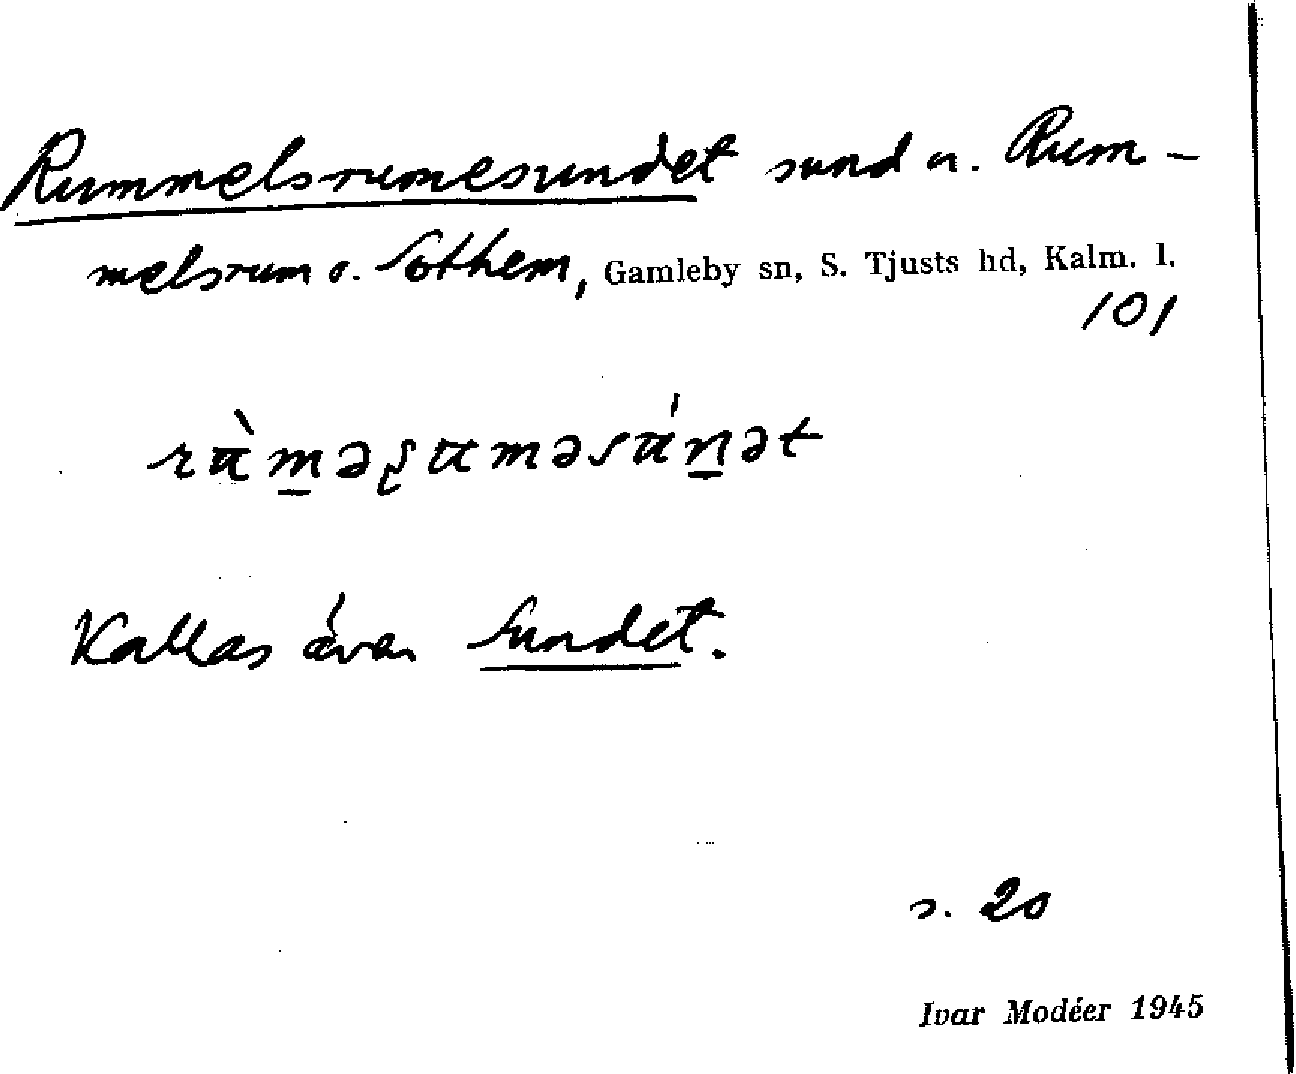 Rummelsrumesundet sund n. Rum-
melsrum o. Sothem, Gamleby sn, S. Tjusts hd, Kalm. l.
101
Kallas även Sundet.
s. 20
Ivar Modéer 1945